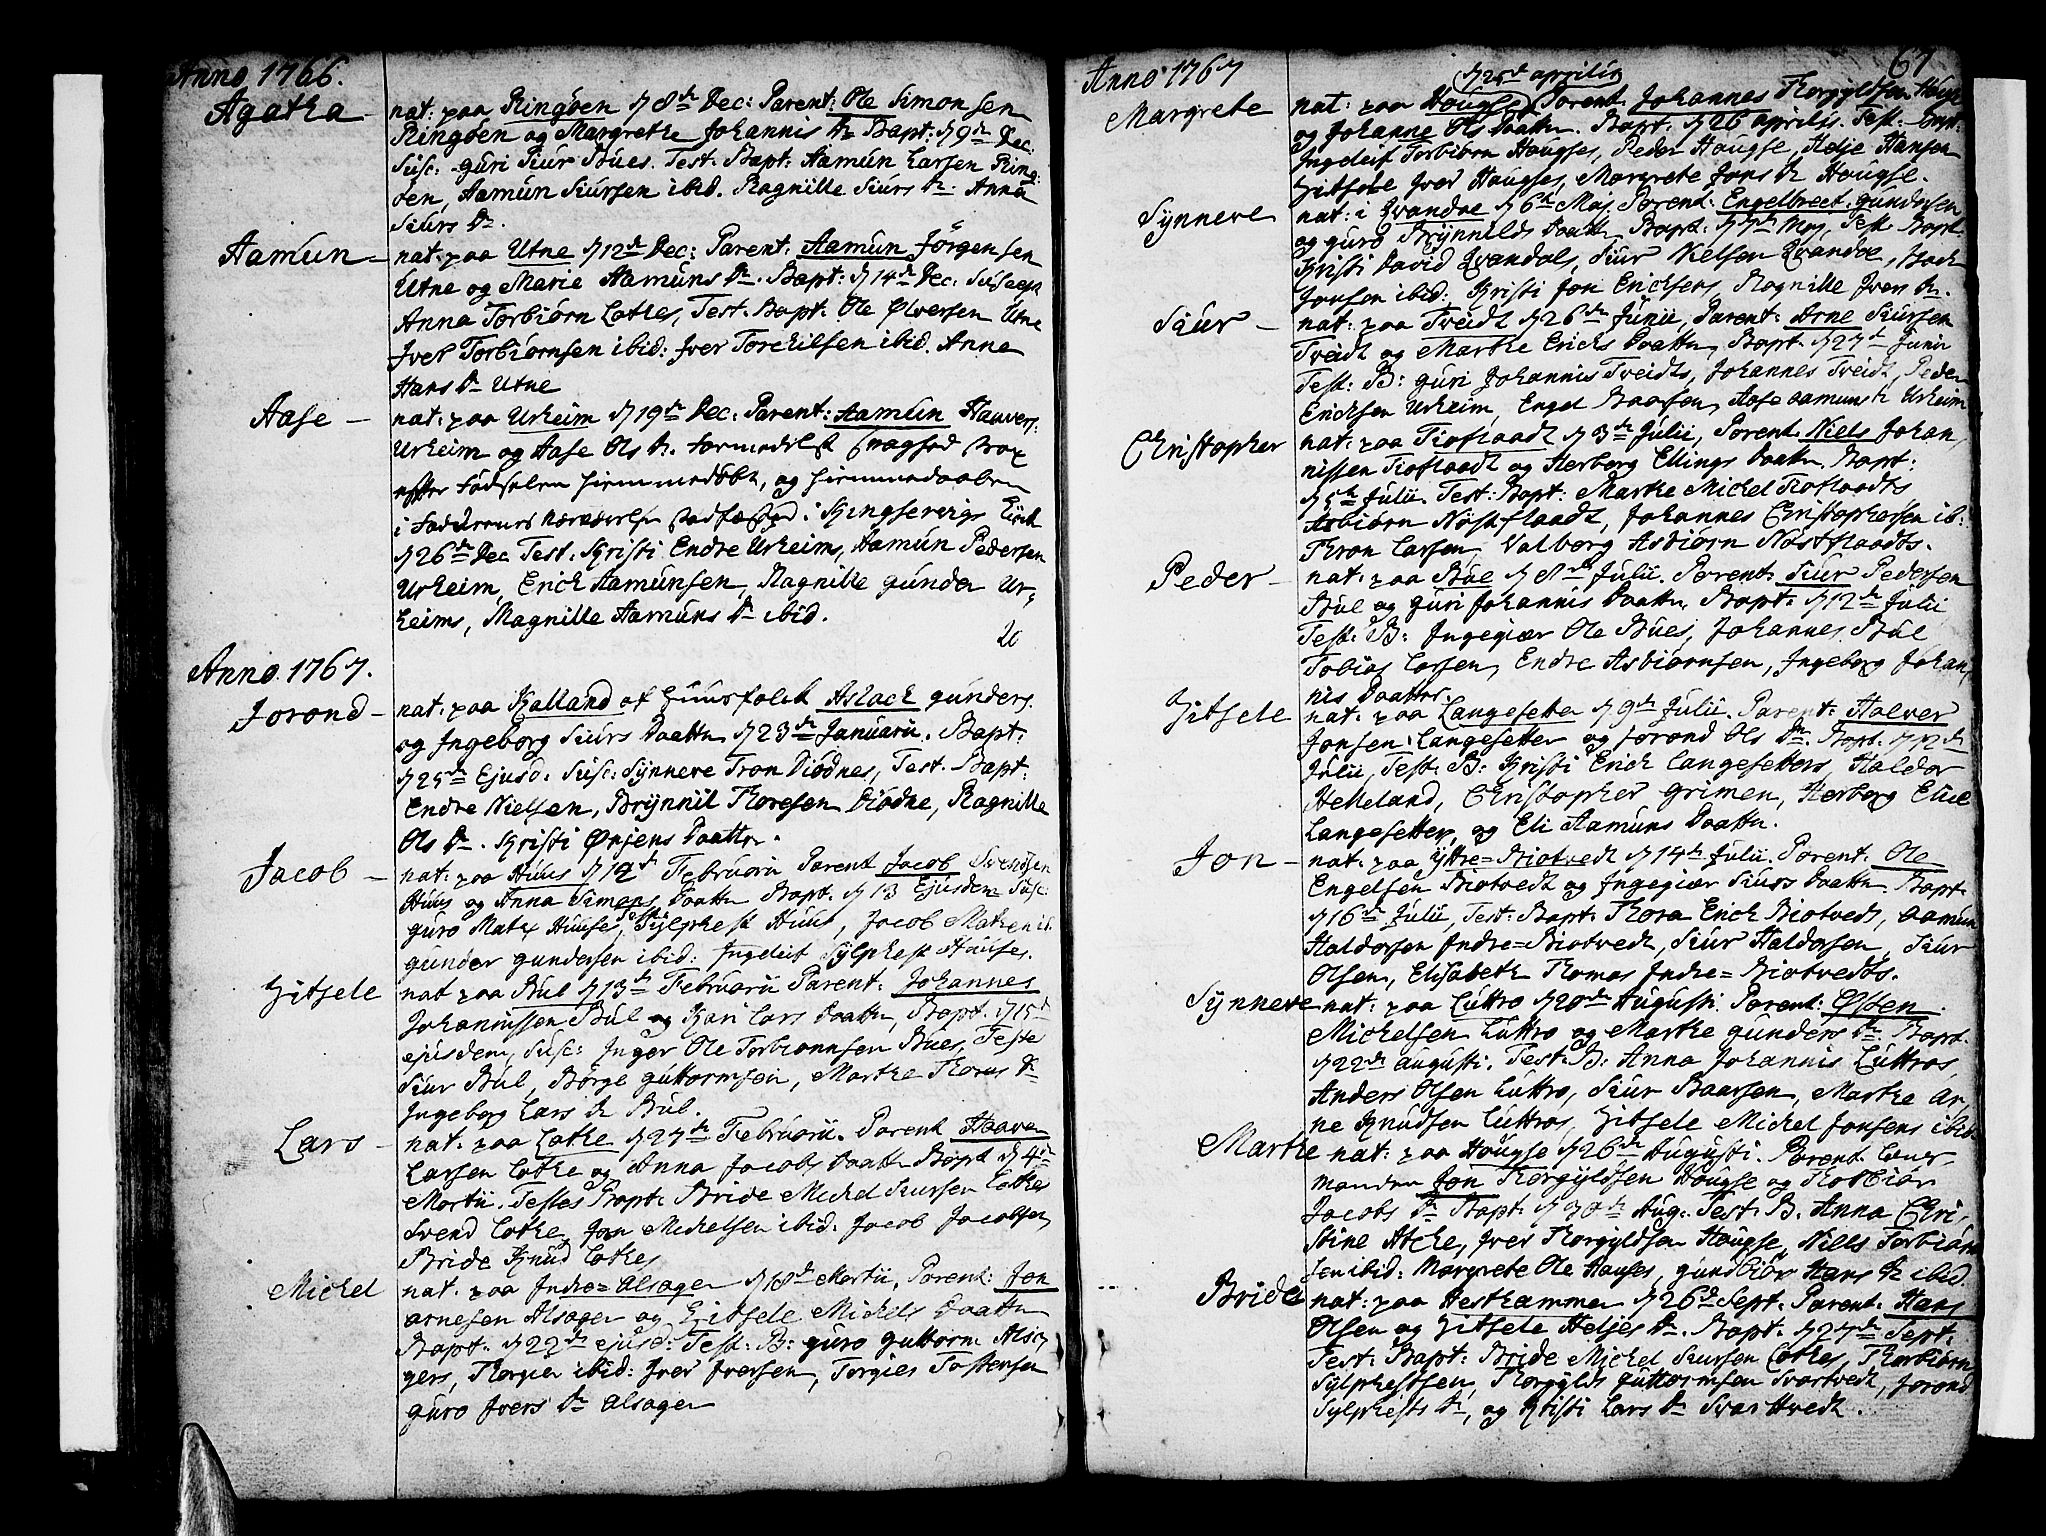 Anno 1766.
Agatha nat: paa Ringöen d 8de Dec: Parent: Ole Simonsen
Ringöen og Margrethe Johannis Dr. Bapt: d 9de Dec:
Susc: guri Siur Bues. Test: Bapt: Aamun Larsen Ring:
öen, Aamun Siursen ibid. Ragnille Siurs Dr: Anna
Siurs Dr.
Aamun nat: paa Utne d 12de Dec: Parent: Aamun Jörgensen
Utne og Marie Aamuns Dr. Bapt: d 14de Dec: Suscep
Anna Torbiörn Lothes, Test. Bapt: Ole Olversen Utne
Iver Torbiörnsen ibid: Iver Torchilsen ibid. Anne
Hans Dr Utne
Aase nat: paa Urheim d 19de Dec: Parent: Aamun Hauvers:
Urheim og Aase Ols Dr. formedelst svaghed strax
efter Födselen hiemmedöbt, og hiemmedaaben
i Fadderures nærværelse stadfæsted i Kingservigs Kirck
d 26de Dec Test: Kristi Endre Urheims, Aamun Pedersen
Urheim, Erich Aamunsen, Ragnille gunder Ur,
heims, Magnille Aamuns Dr ibid.
20
Anno 1767.
Jorond nat: paa Kalland af Huusfolck Aslack gunders.
og Ingeborg Siurs Daatter d 23de Januarii. Bapt:
d 25de Ejusd: Susc: Synneve Tron Diödnes, Test. Bapt:
Endre Nielsen, Brynnil Thoresen Diödne, Ragnille
Ols Dr. Kristi Örjens Daatter.
Jacob nat: paa Huus d 12t Februarii Parent Jacob Svendsen
Huus og Anna Simons Daatter Bapt. d 13 Ejusdem Susc:
guro Mates Huuses, Teste: Sylphest Huus, Jacob Mathen ib.
gunder gundersen ibid: Ingeleif Sylphest Hauses.
Zitsele nat paa Bul d 13de Februarii Parent: Johannes
Johannissen Bul og Kari Lars Daatter, Bapt. d 15d
ejusdem, Susc: Inger Ole Torbiönnsen Bues, Teste
Siur Bul, Börge guttormsen, Marthe Thores Dr
Ingeborg Lars Dr Bul.
Lars nat: paa Lothe d 27de Februarii. Parent Haaver
Larsen Lothe og Anna Jacobs Daatter Bapt d 4de
Martii. Testes Bapt: Bride Michel Siursen Lothes
Svend Lothe, Jon Michelsen ibid: Jacob Jacobsen
Bride Knud Lothes
Michel nat. paa Indre=Alsager d 18de Martii, Parent: Jon
arnesen Alsager og Zitsele Michels Daatter
Bapt: d 22de ejusd: Test: B: guro guttorm Alsa,
gers, Thorger ibid: Iver Iversen, Torgies Tostensen
guro Ivers Dr Alsager
67
Anno 1767
d 25de aprilis
Margrete nat: paa Hougse Parent: Johannes Thorgyldsen Hougse
og Johanne Ols Daatter. Bapt: d 26 aprilis. Test: Bapt:
Ingeleif Torbiörn Hougses, Peder Hougse, Helje Hansen
Zitsele Iver Hougses, Margrete Jons Dr Hougse.
Synneve nat: i Qvandae d 6de Maj Parent: Engelbrect gundersen
og guro Brynnilds Daatter Bapt: d 7de Maj, Test Bapt:
Kristi David Qvandals, Siur Nielsen Qvandae, Isach
Jonsen ibid: Kristi Jon Ericksens, Ragnille Ivers Dr.
Siur nat: paa Tveidt d 26de Junii, Parent: Arne Siursen
Tveidt og Marthe Erichs Daatter, Bapt: d 27d Junii
Test: B: guri Johannis Tveidts, Johannes Tveidt, Peder
Ericksen Urheim, Engel Baarsen, Aase aamuns Dr Urheim
Christopher nat: paa Tioflaadt d 3de Julii, Parent. Niels Johan,
nissen Tioflaadt og Herborg Ellings Daatter Bapt:
d 5de Julii. Test: Bapt: Marthe Michel Tioflaadts
Asbiörn Nöstflaadt, Johannes Christophersen ib:
Thron Larsen, Valborg Asbiörn Nöstflaadts.
Peder nat: paa Bue d 8de Julii. Parent: Siur Pedersen
Bul og Guri Johannis Daatter, Bapt: d 12de Julii
Test: B: Ingegiær Ole Bues, Johannes Bul
Tobias Larsen, Endre Asbiörnsen, Ingeborg Johan,
nis Daatter.
Zitsele nat: paa Langesetter d 9de Julii. Parent: Halver
Jonsen Langesetter og Jorond Ols Dr. Bapt: d 12de
Julii, Test: B: Kristi Erich Langesetters, Haldor
Helleland, Christopher Grimen, Herborg Elie
Langesetter, og Eli Aamuns Daatter.
Jon nat: paa Ytre=Biotvedt d 14de Julii. Parent: Ole
Engelsen Biotvedt og Ingegiær Siurs Daatter Bapt:
d 16de Julii, Test: Bapt: Thora Erich Biotvedts, Aamun
Haldorsen Indre=Biotvedt, Siur Haldorsen, Siur
Olsen, Elisabeth Thomas Indre=Biotvedts.
Synneve nat: paa Luttro d 20de Augusti. Parent: Östen
Michelsen Luttro og Marthe gunders Dr. Bapt.
d 22de augusti. Test: B: Anna Johannis Luttros,
Anders Olsen Luttro, Siur Baarsen, Marthe Ar,
ne Knudsen Luttros, Zitsele Michel Jonsens ibid.
Marthe nat: paa Hougse d 26de Augusti. Parent
manden Jon Thorgyldsen Hougse og Thorbiör
Jacobs Dr Bapt: d 30de Aug: Test: B. Anna Chri,
stine Atche, Iver Thorgyldsen Hougse, Niels Torbiörn
sen ibid: Margrete Ole Hauses, gundbiör Hans Dr ibid.
Bride nat: paa Hesthammer d 26de Sept. Parent: Hans
Olsen og Zitsele Heljes Dr. Bapt: d 27de Sept:
Test: Bapt: Bride Michel Siursen Lothes, Thorbiörn
Sylphestsen, Thorgyld Guttormsen Svartvedt, Jorond
Sylphests Dr, og Kristi Lars Dr Svartvedt.